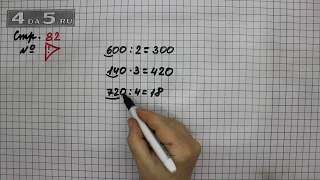 4DA5.RU
Стр. 82
№ !
600 : 2 = 300
140 · 3 = 420
720 : 4 = 18